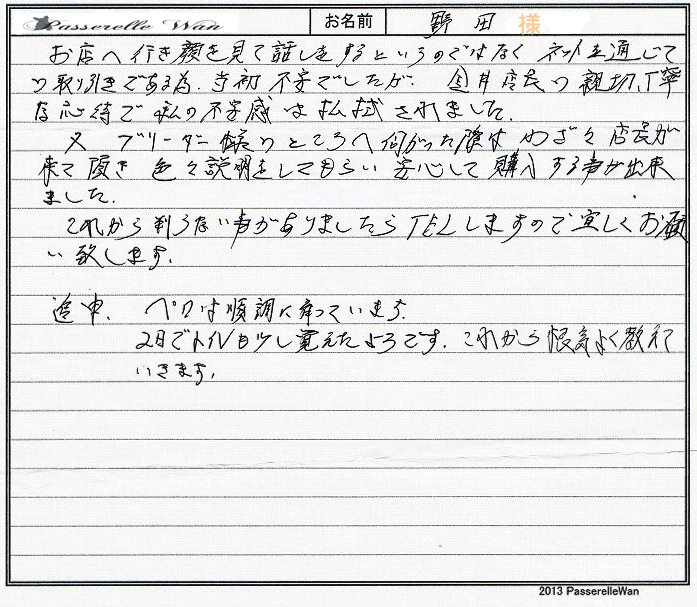 Passerelle Wan お名前 野田 様
お店へ行き顔を見て話しをするというのではなく ネットを通じて
の取り引きである為、当初 不安でしたが、金井店長の親切、丁寧
な応待で私の不安感は払拭されました。
又 ブリーダー様のところへ伺がった際は わざわざ 店長が
来て頂き 色々説明をしてもらい 安心して購入する事が出来
ました。
これから判らない事がありましたらTELしますので宜しくお願
い致します。
追申、 ペロは順調に育っています。
2日でトイレも少し覚えたようです。これから根気よく教えて
いきます。
2013 PasserelleWan